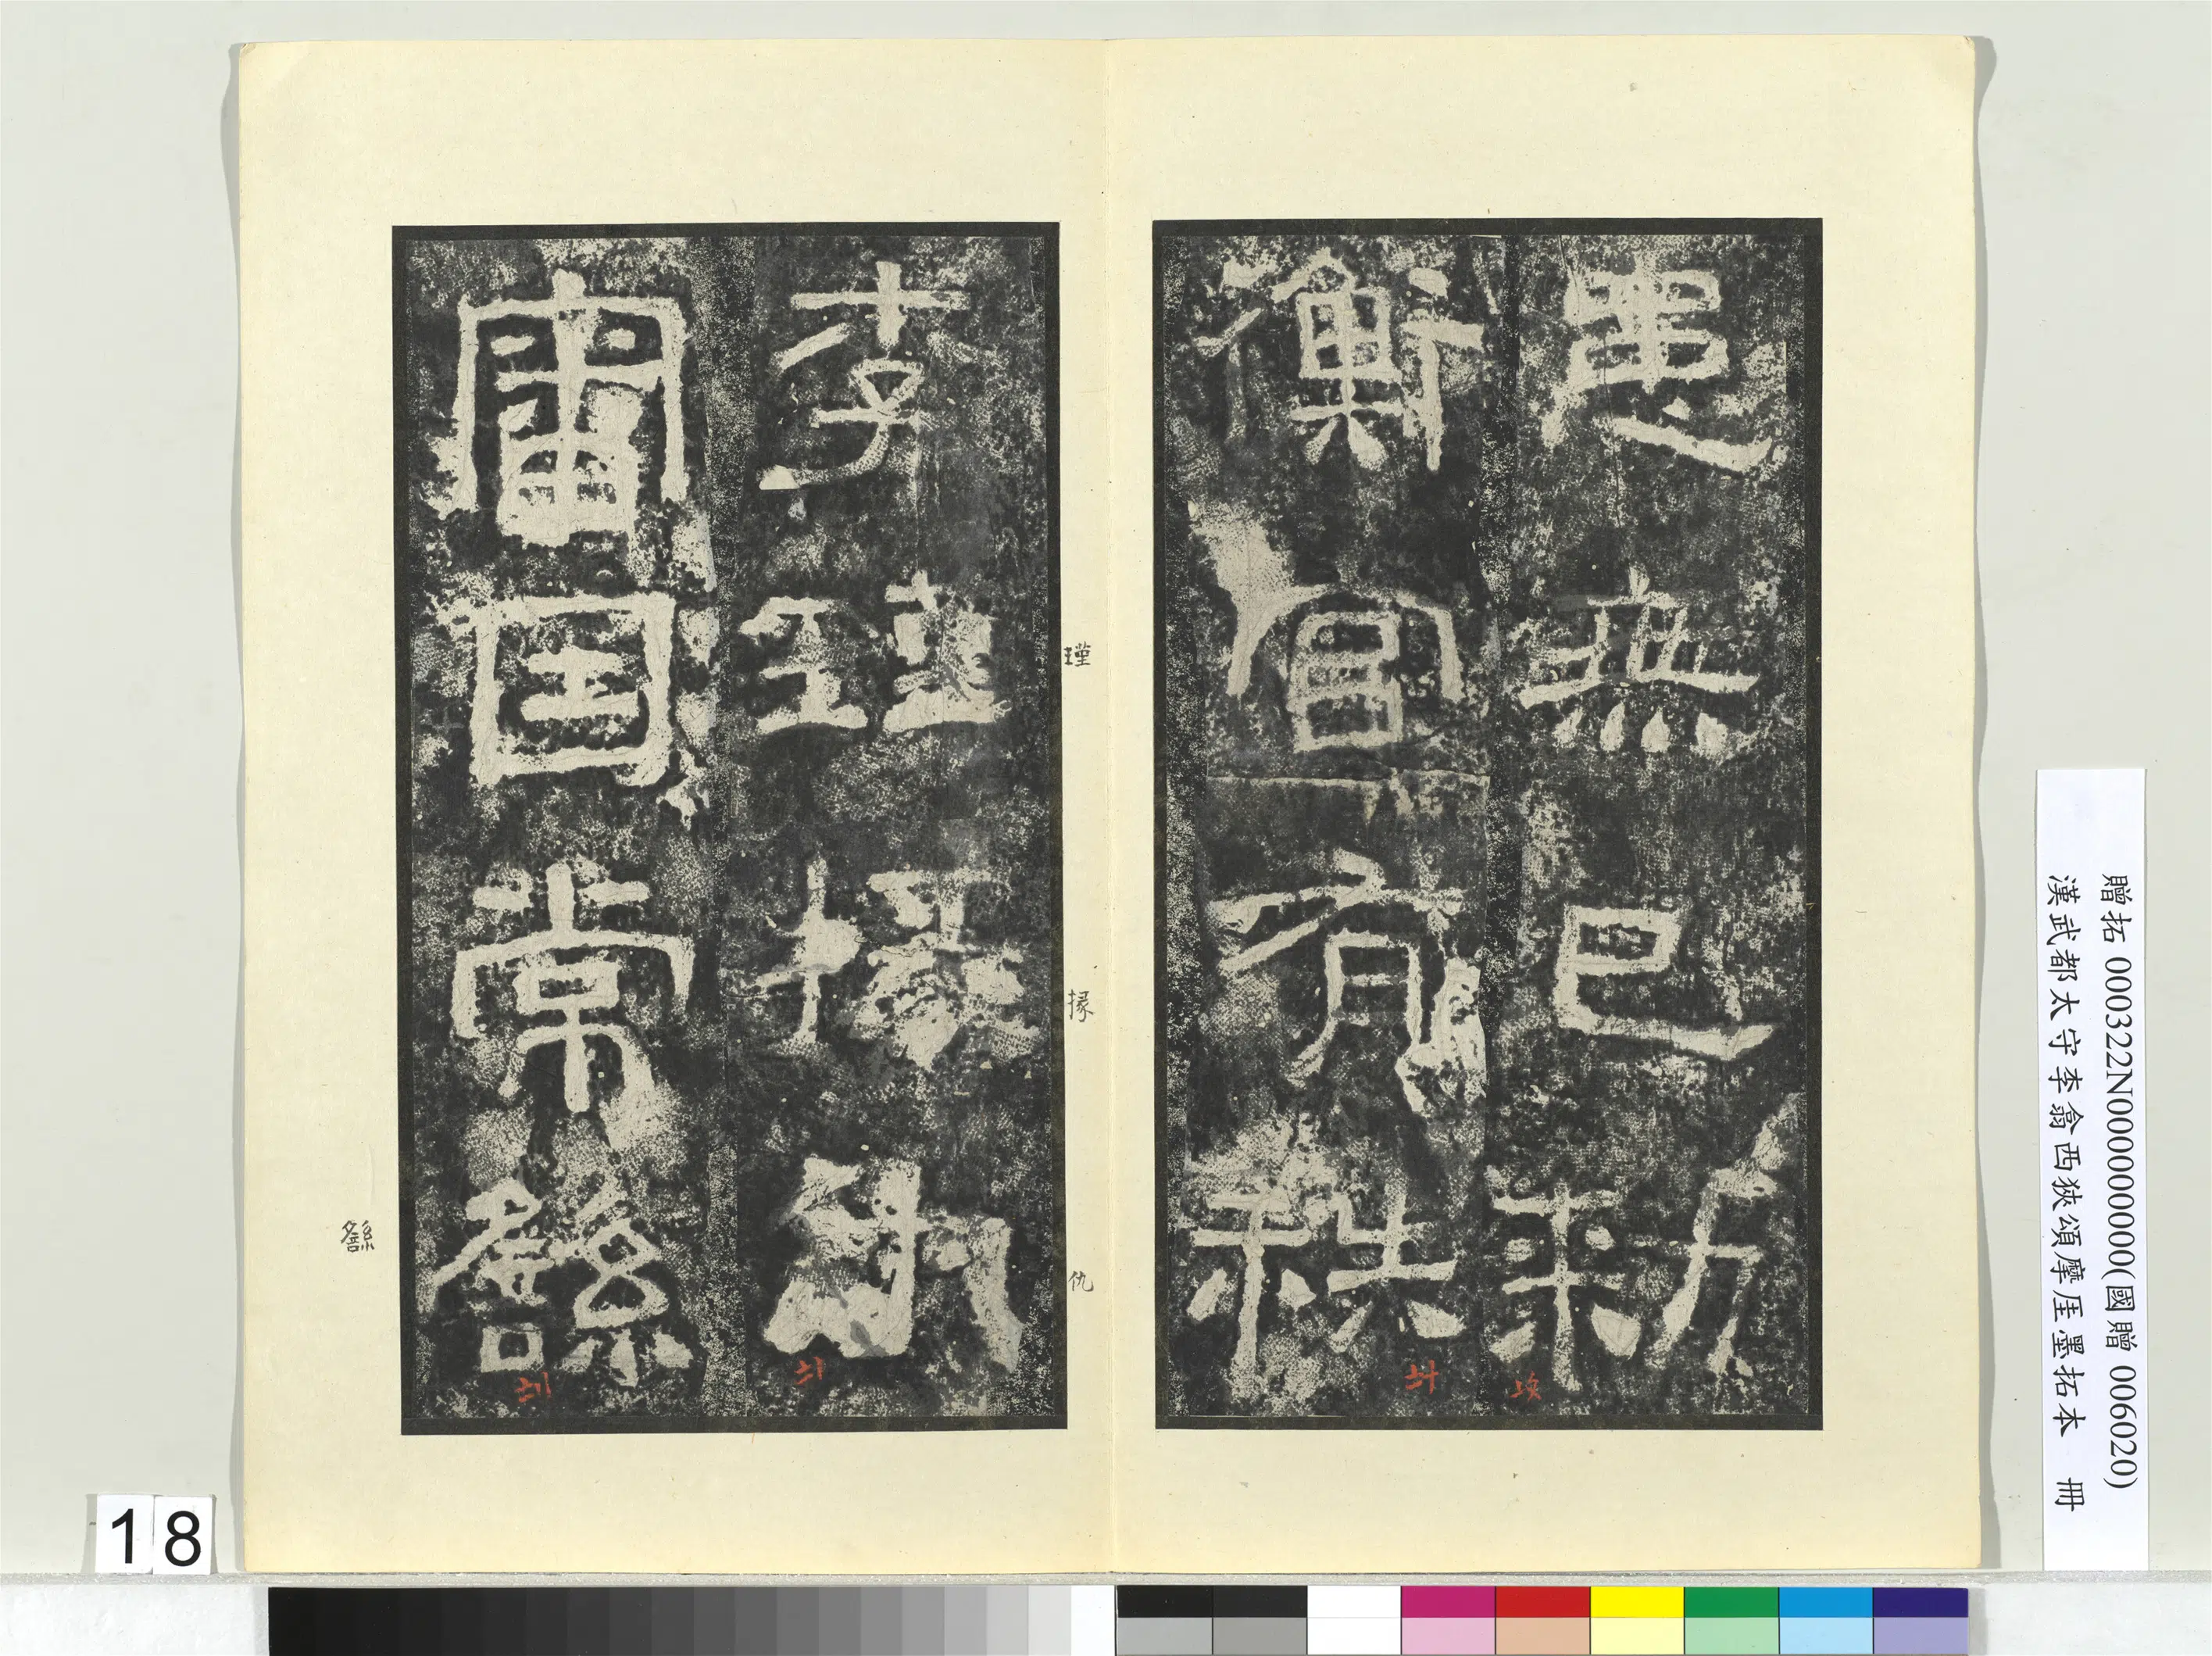 患無已敕
衡官有秩
李瑾掾仇
審因常繇
瑾
掾
仇
繇
贈拓 000322N000000000(國贈 006020)
漢武都太守李翕西狹頌摩厓墨拓本 冊
18